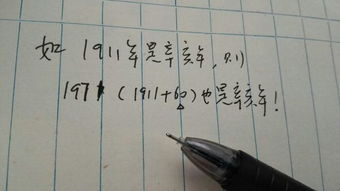 如 1911年是辛亥年，则
1971 (1911+60)也是辛亥年！